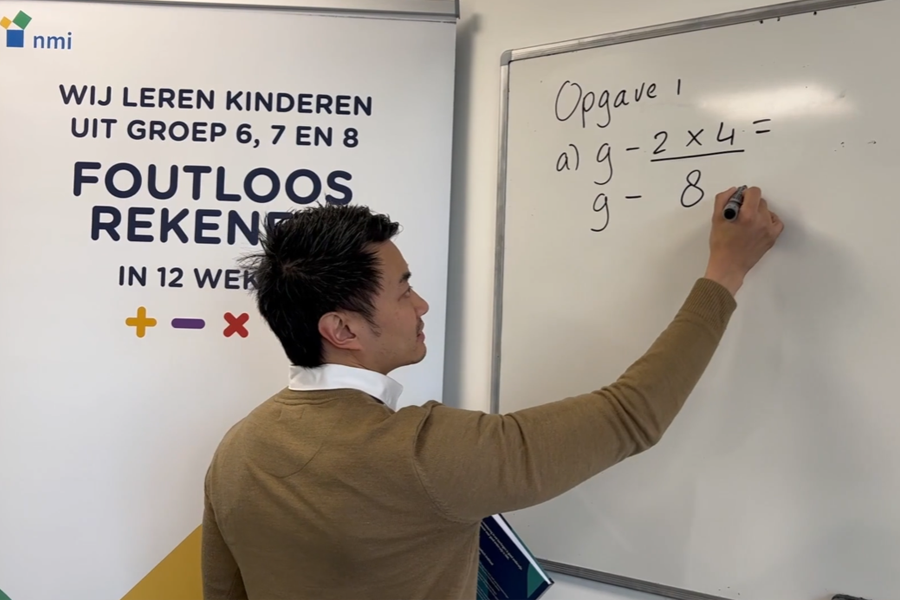 nmi
WIJ LEREN KINDEREN
UIT GROEP 6, 7 EN 8
FOUTLOOS
REKENE
IN 12 WEK
+ - ×
Opgave 1
a) 9 - 2 × 4 =
9 - 8